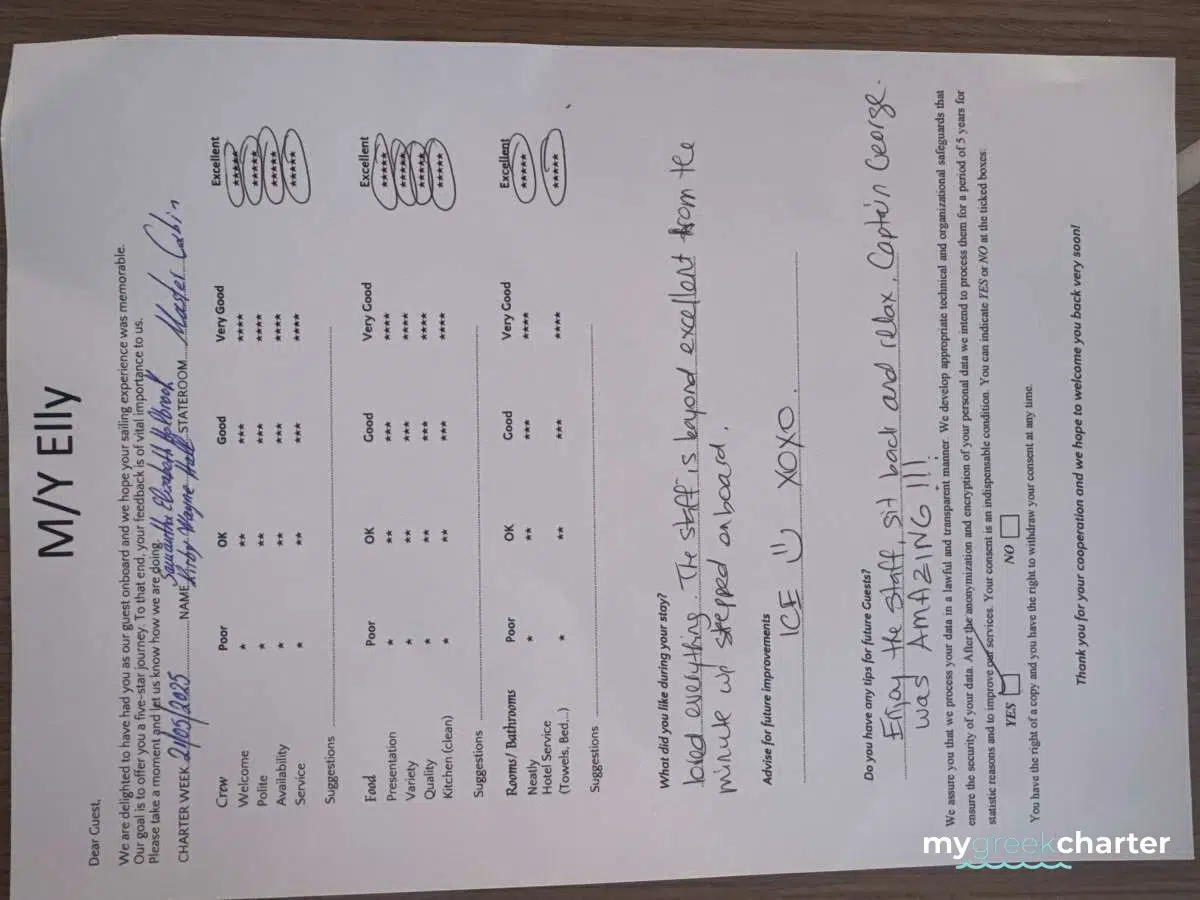 M/Y Elly
Dear Guest,
We are delighted to have had you as our guest onboard and we hope your sailing experience was memorable.
Our goal is to offer you a five-star journey. To that end, your feedback is of vital importance to us.
Please take a moment and let us know how we are doing.
Samantha Elizabeth Holbrook
CHARTER WEEK 21/05/2025 NAME Kirby Wayne Hall STATEROOM Master Cabin
Crew Poor OK Good Very Good Excellent
Welcome * ** *** **** *****
Polite * ** *** **** *****
Availability * ** *** **** *****
Service * ** *** **** *****
Suggestions
Food Poor OK Good Very Good Excellent
Presentation * ** *** **** *****
Variety * ** *** **** *****
Quality * ** *** **** *****
Kitchen (clean) * ** *** **** *****
Suggestions
Rooms/ Bathrooms Poor OK Good Very Good Excellent
Neatly * ** *** **** *****
Hotel Service
(Towels, Bed...) * ** *** **** *****
Suggestions
What did you like during your stay?
loved everything. The staff is beyond excellent from the
minute we stepped onboard.
Advise for future improvements
ICE XOXO.
Do you have any tips for future Guests?
Enjoy the staff, sit back and relax, Captain George
was AMAZING!!!
We assure you that we process your data in a lawful and transparent manner. We develop appropriate technical and organizational safeguards that
ensure the security of your data. After the anonymization and encryption of your personal data we intend to process them for a period of 5 years for
statistic reasons and to improve our services. Your consent is an indispensable condition. You can indicate YES or NO at the ticked boxes:
YES NO
You have the right of a copy and you have the right to withdraw your consent at any time.
Thank you for your cooperation and we hope to welcome you back very soon!
mygreekcharter